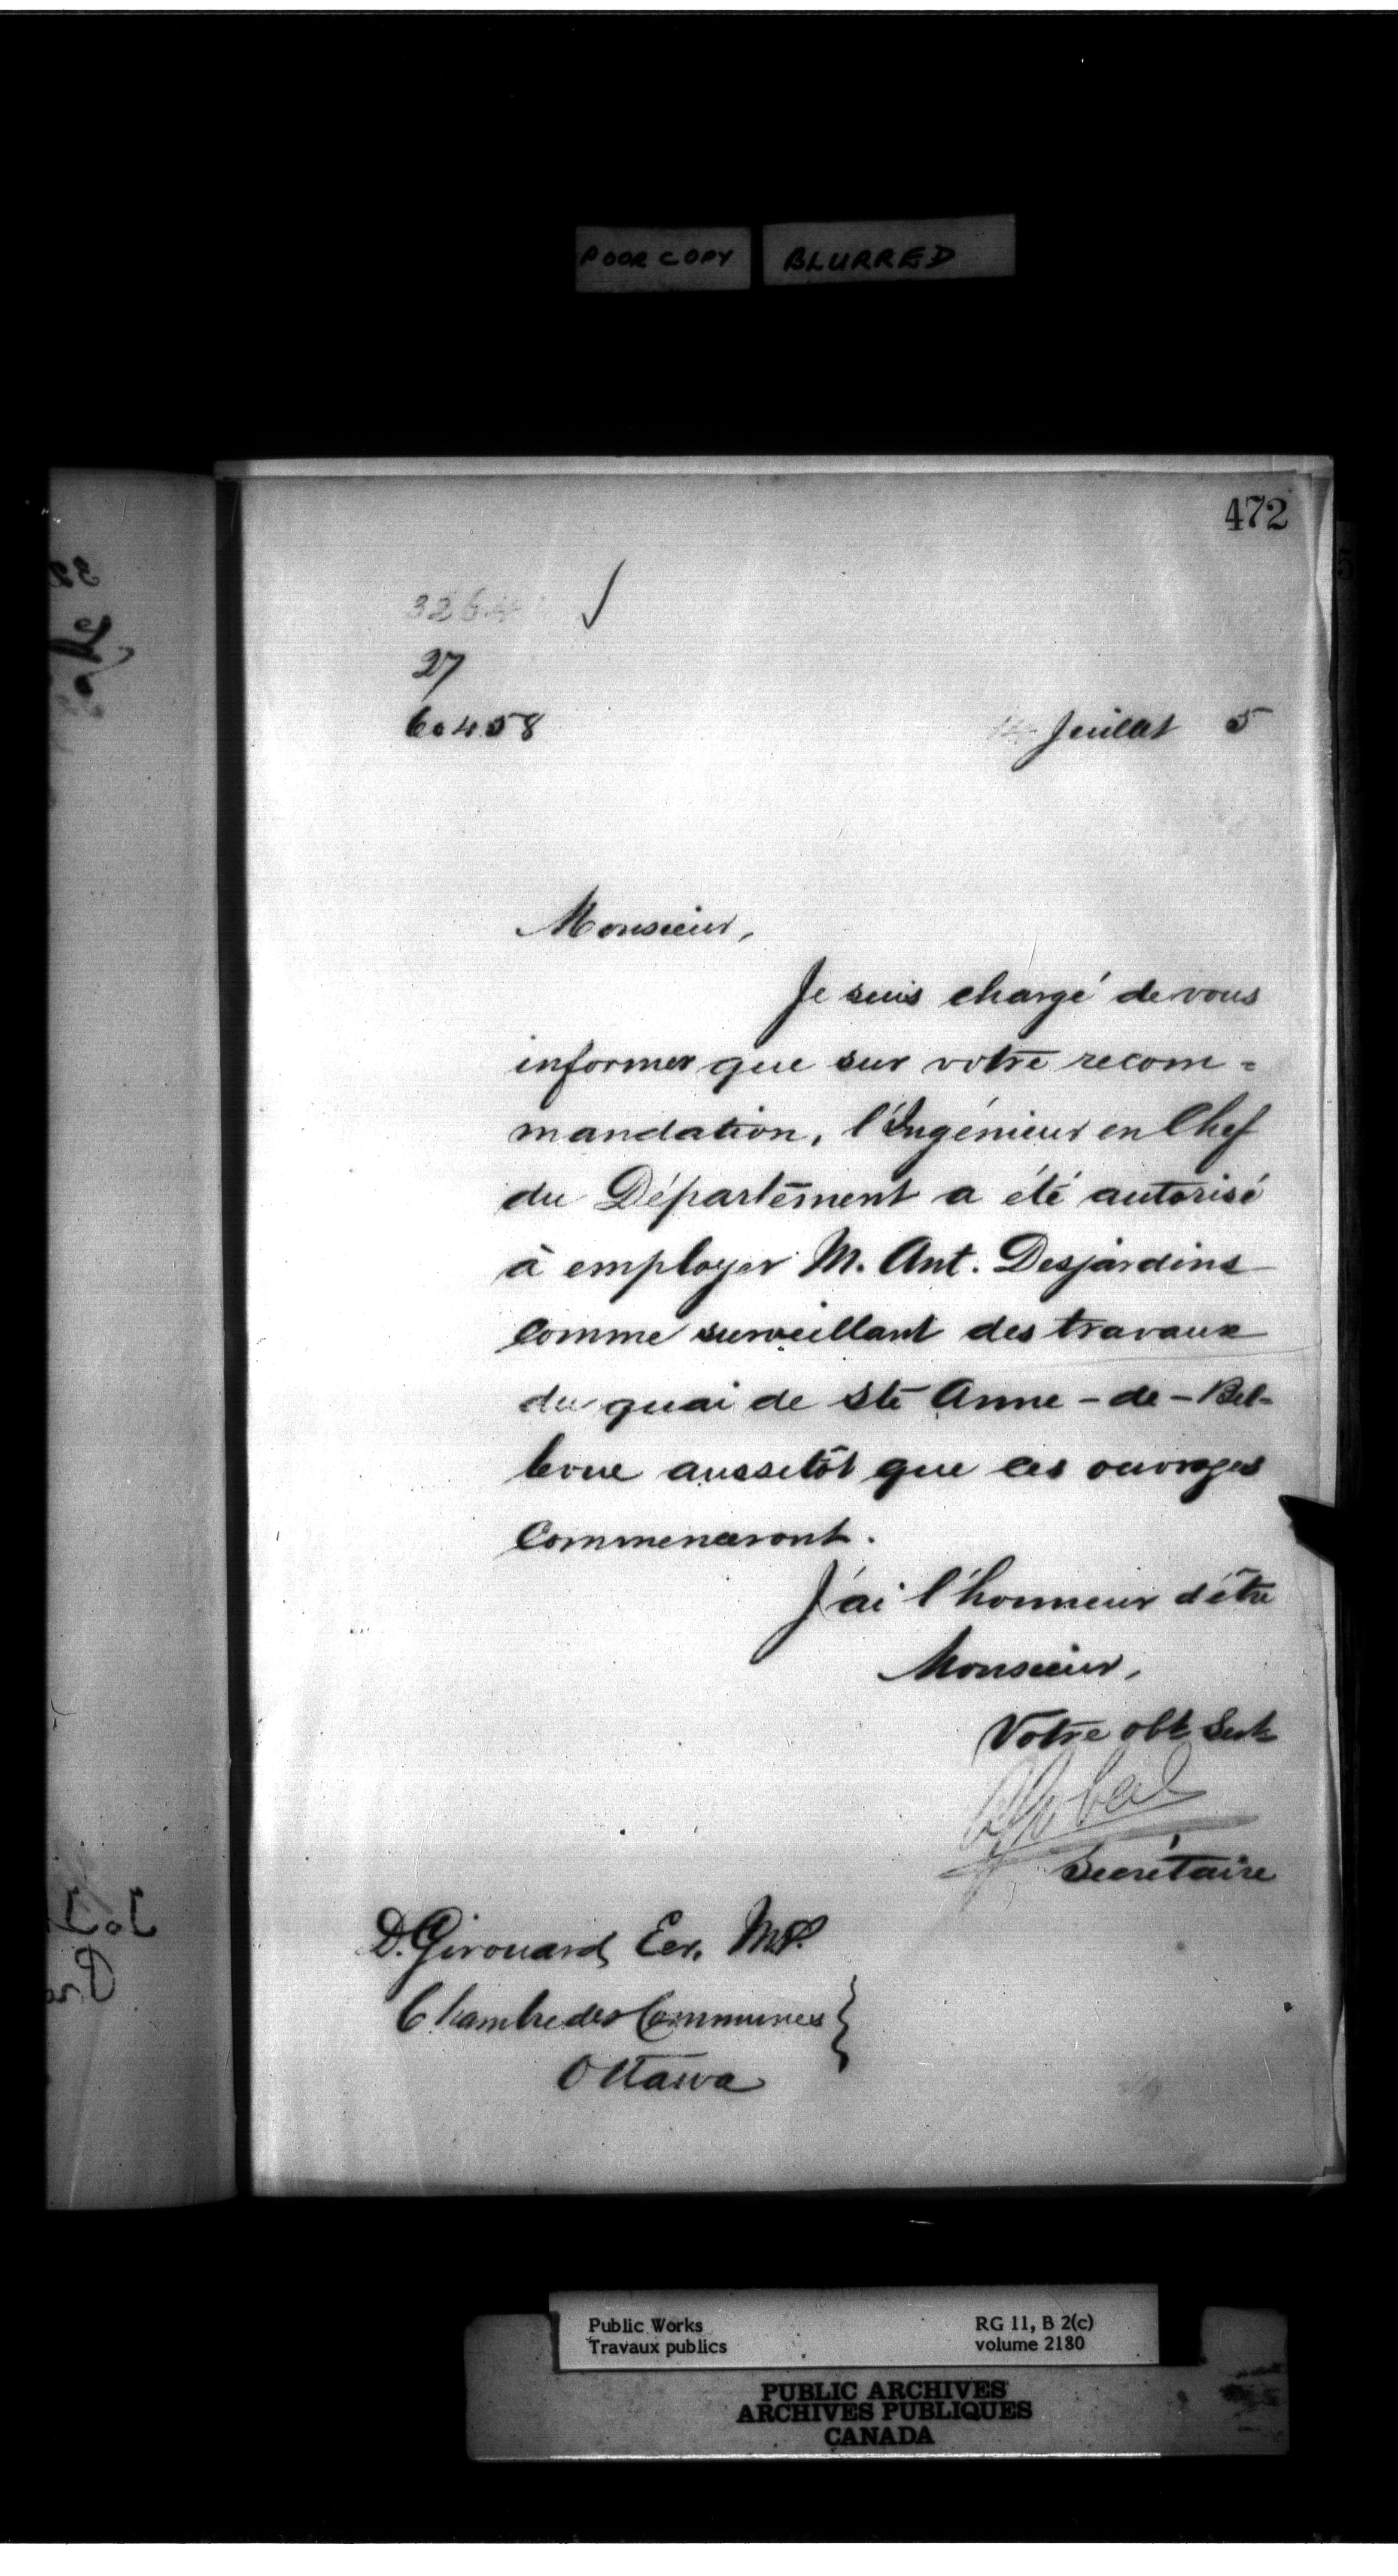 POOR COPY BLURRED
472
3264
27
60458
14 Juillet 5
Monsieur,
Je suis chargé de vous
informer que sur votre recom=
mandation, l'Ingénieur en Chef
du Département a été autorisé
à employer M. Ant. Desjardins
comme surveillant des travaux
du quai de Ste Anne-de-Bel-
levue aussitôt que ces ouvrages
commenceront.
J'ai l'honneur d'être
Monsieur,
Votre obt Sert
Secrétaire
D. Girouard Ecr. MP.
Chambre des Communes
Ottawa
Public Works RG 11, B 2(c)
Travaux publics volume 2180
PUBLIC ARCHIVES
ARCHIVES PUBLIQUES
CANADA